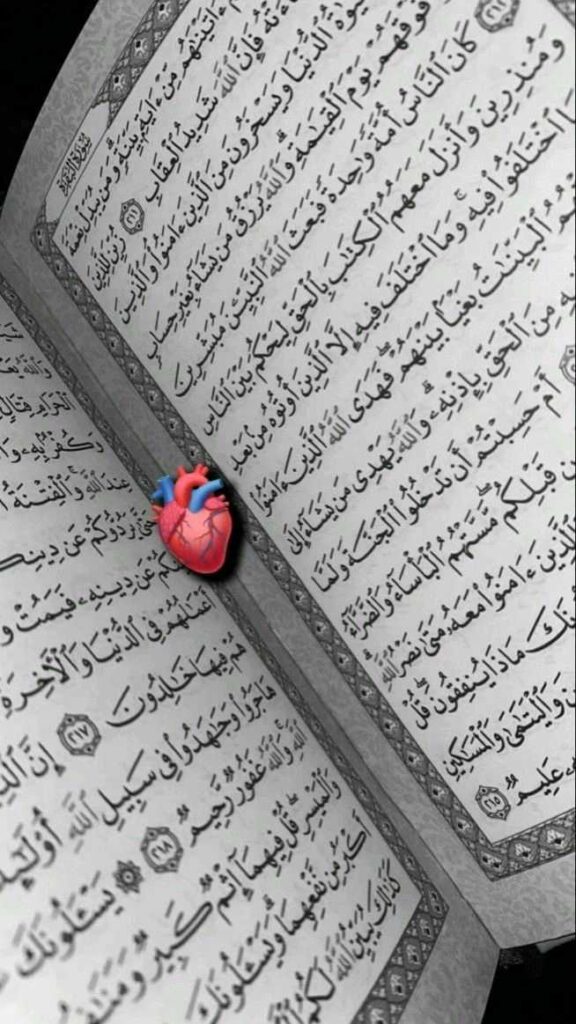 سُورَةُ البَقَرَةِ
ءَاتَيْنَٰهُم مِّنْ ءَايَةٍۭ بَيِّنَةٍ ۗ وَمَن يُبَدِّلْ نِعْمَةَ
فَإِنَّ ٱللَّهَ شَدِيدُ ٱلْعِقَابِ ٢١١ زُيِّنَ لِلَّذِينَ
ٱلدُّنْيَا وَيَسْخَرُونَ مِنَ ٱلَّذِينَ ءَامَنُوا۟ ۘ وَٱلَّذِينَ
فَوْقَهُمْ يَوْمَ ٱلْقِيَٰمَةِ ۗ وَٱللَّهُ يَرْزُقُ مَن يَشَآءُ بِغَيْرِ حِسَابٍ
٢١٢ كَانَ ٱلنَّاسُ أُمَّةً وَٰحِدَةً فَبَعَثَ ٱللَّهُ ٱلنَّبِيِّـۧنَ مُبَشِّرِينَ
وَمُنذِرِينَ وَأَنزَلَ مَعَهُمُ ٱلْكِتَٰبَ بِٱلْحَقِّ لِيَحْكُمَ بَيْنَ ٱلنَّاسِ
ٱخْتَلَفُوا۟ فِيهِ ۚ وَمَا ٱخْتَلَفَ فِيهِ إِلَّا ٱلَّذِينَ أُوتُوهُ مِنۢ بَعْدِ
ٱلْبَيِّنَٰتُ بَغْيًۢا بَيْنَهُمْ ۖ فَهَدَى ٱللَّهُ ٱلَّذِينَ ءَامَنُوا۟
مِنَ ٱلْحَقِّ بِإِذْنِهِۦ ۗ وَٱللَّهُ يَهْدِى مَن يَشَآءُ إِلَىٰ
أَمْ حَسِبْتُمْ أَن تَدْخُلُوا۟ ٱلْجَنَّةَ وَلَمَّا
قَبْلِكُم ۖ مَّسَّتْهُمُ ٱلْبَأْسَآءُ وَٱلضَّرَّآءُ
وَٱلَّذِينَ ءَامَنُوا۟ مَعَهُۥ مَتَىٰ نَصْرُ ٱللَّهِ
مَاذَا يُنفِقُونَ ۖ قُلْ
وَٱلْيَتَٰمَىٰ وَٱلْمَسَٰكِينِ
عَلِيمٌ ٢١٥
ٱلْحَرَامِ قِتَالٍ
وَكُفْرٌۢ بِهِۦ
عِندَ ٱللَّهِ ۚ وَٱلْفِتْنَةُ
يَرُدُّوكُمْ عَن دِينِكُمْ
عَن دِينِهِۦ فَيَمُتْ
أَعْمَٰلُهُمْ فِى ٱلدُّنْيَا وَٱلْءَاخِرَةِ
هُمْ فِيهَا خَٰلِدُونَ ٢١٧ إِنَّ
هَاجَرُوا۟ وَجَٰهَدُوا۟ فِى سَبِيلِ ٱللَّهِ أُو۟لَٰٓئِكَ
ٱللَّهِ ۚ وَٱللَّهُ غَفُورٌ رَّحِيمٌ ٢١٨ يَسْـَٔلُونَكَ
وَٱلْمَيْسِرِ ۖ قُلْ فِيهِمَآ إِثْمٌ كَبِيرٌ وَمَنَٰفِعُ
أَكْبَرُ مِن نَّفْعِهِمَا ۗ وَيَسْـَٔلُونَكَ
كَذَٰلِكَ يُبَيِّنُ ٱللَّهُ لَكُمُ